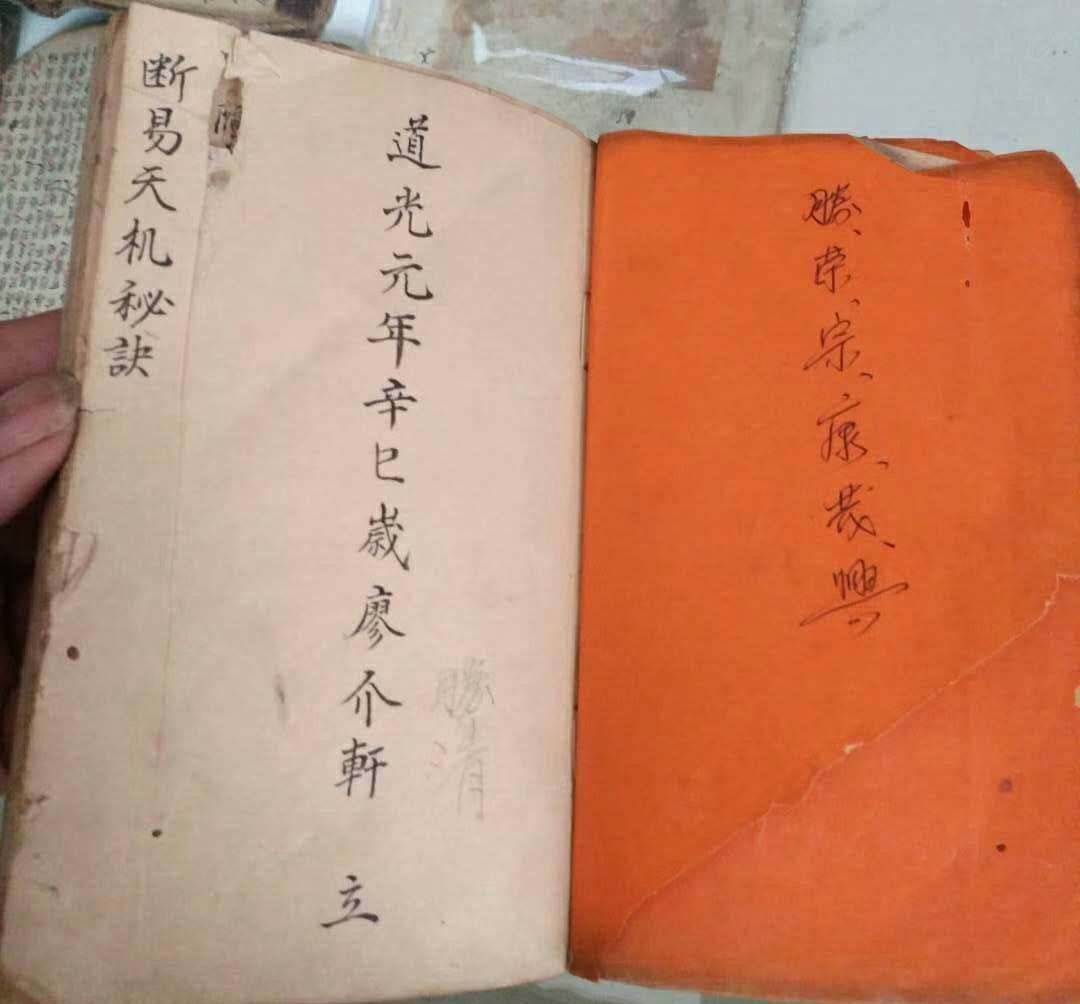 断易天机秘訣
道光元年辛巳歳廖介軒 立
勝清
勝、荣、宗、康、茂、興